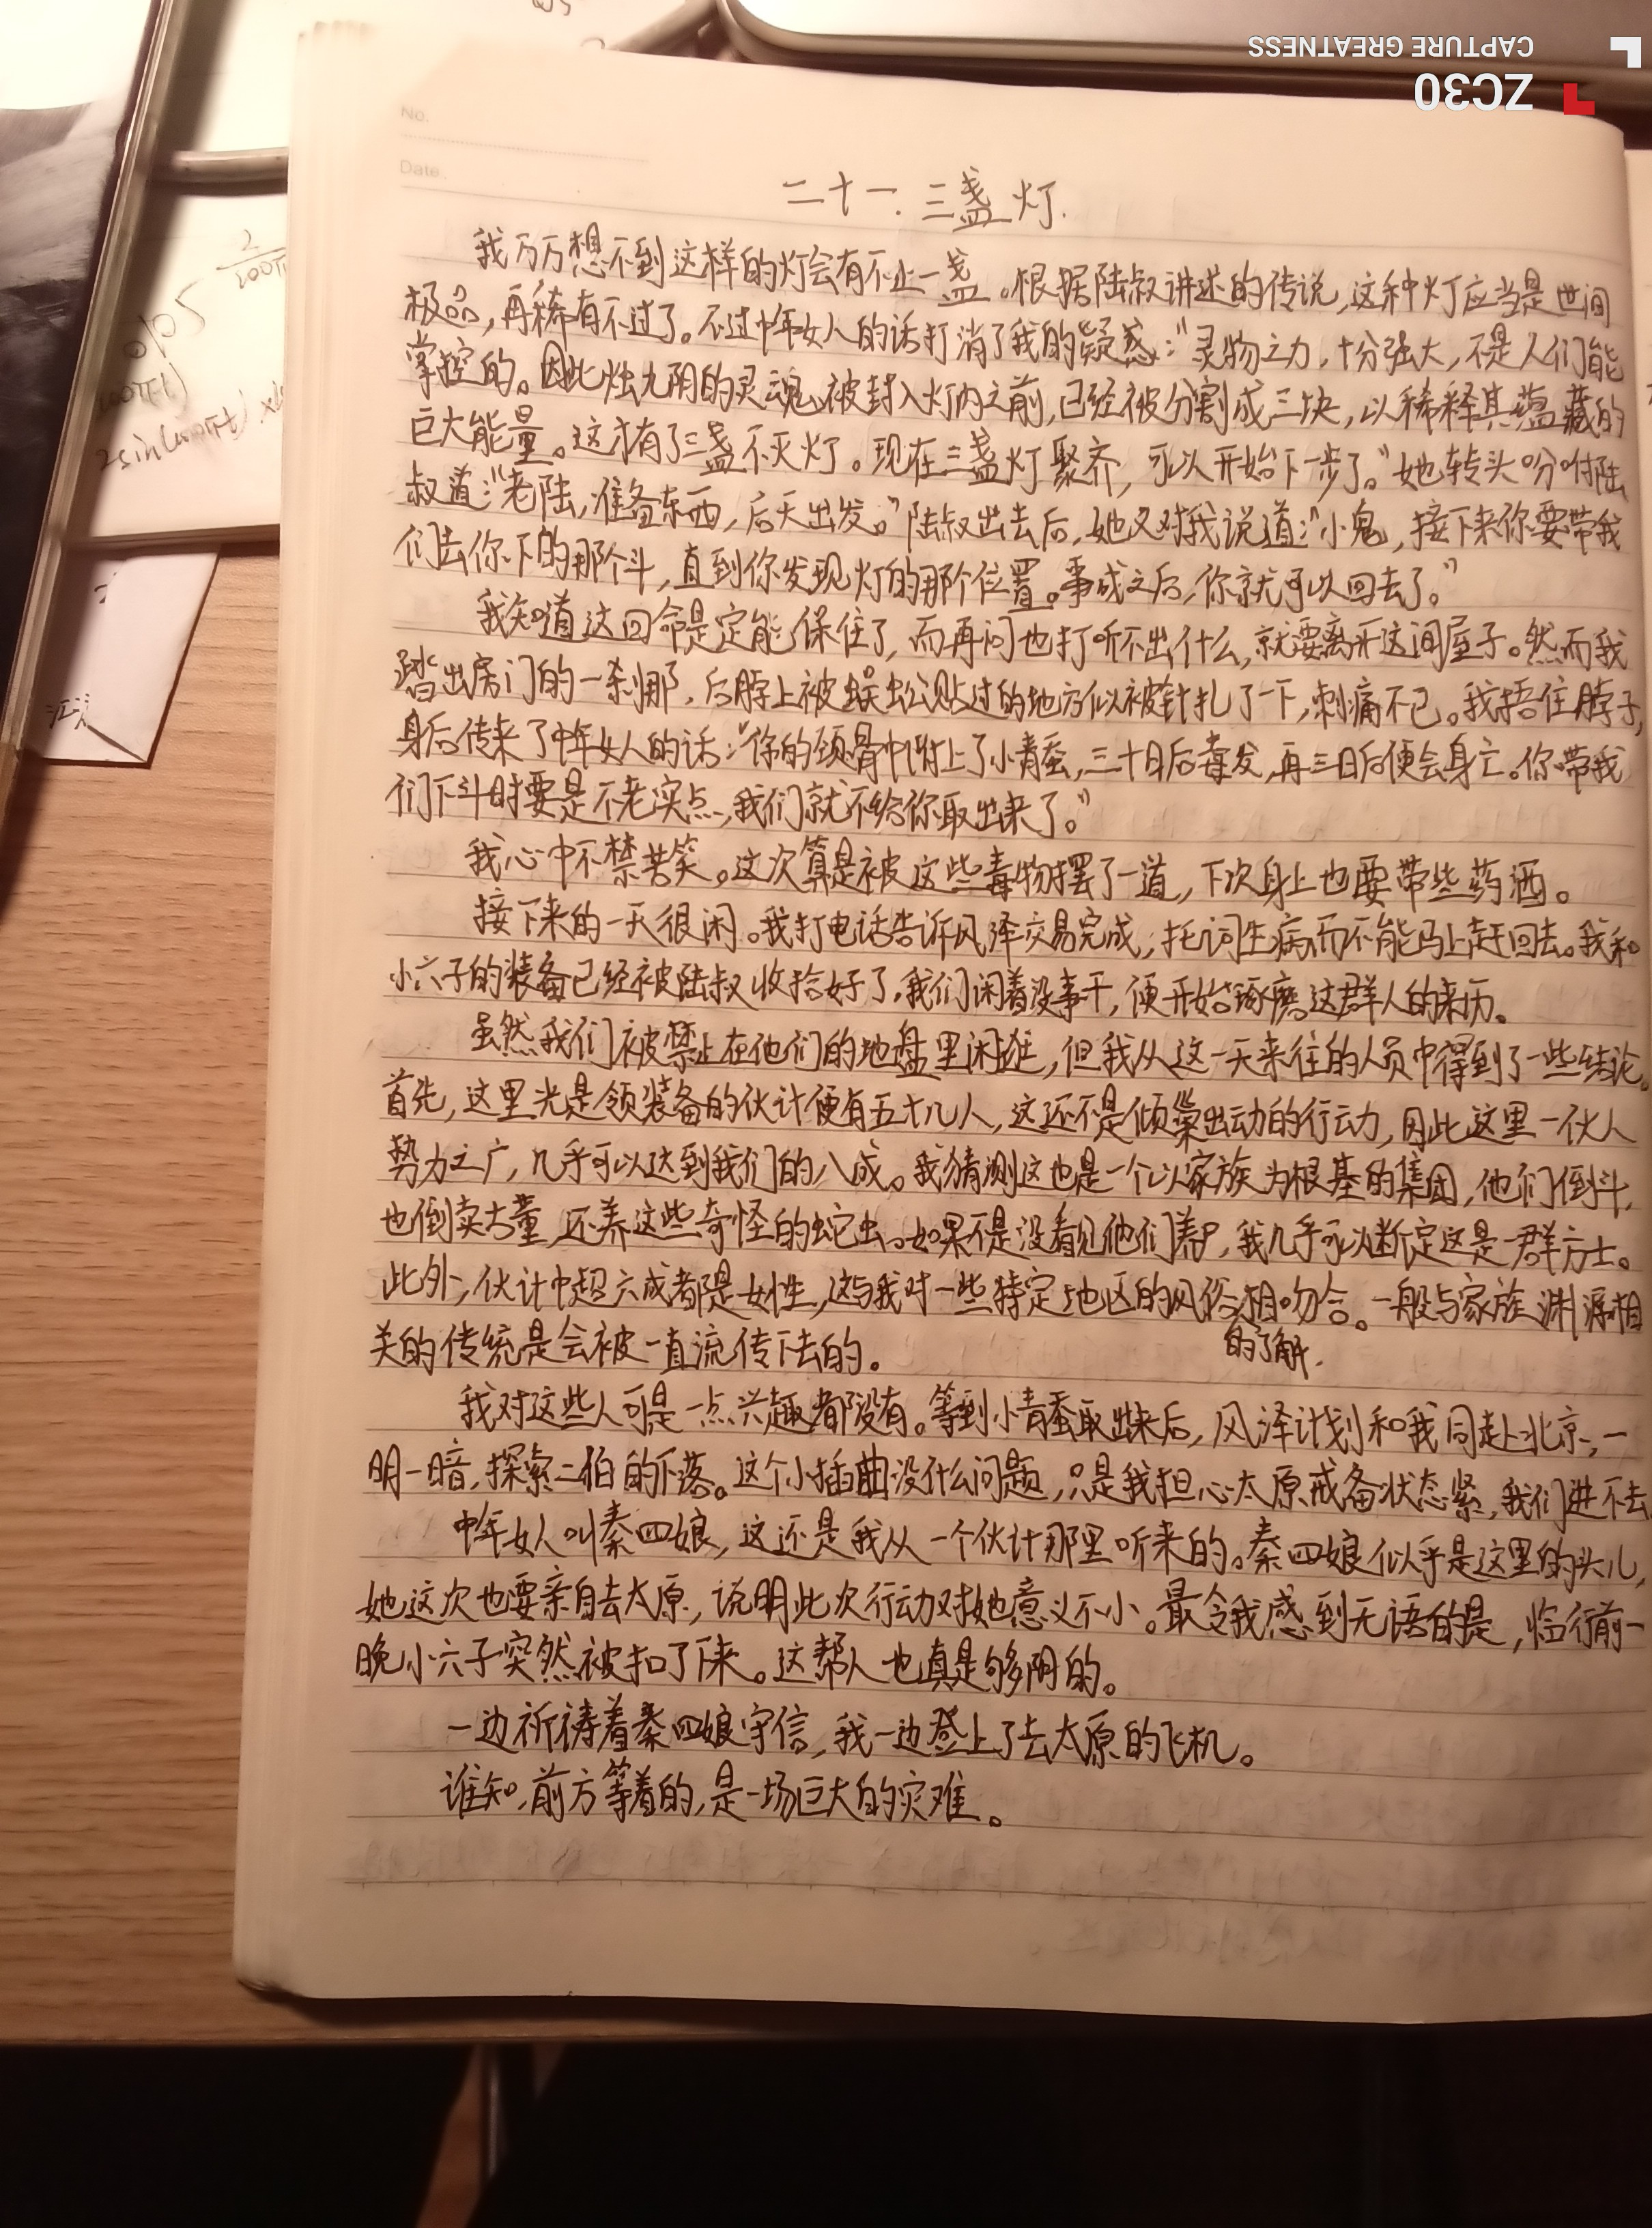 CAPTURE GREATNESS
ZC30
No.
Date.
二十一. 三盏灯.
我万万想不到这样的灯会有不止一盏。根据陆叔讲述的传说,这种灯应当是世间
极品,再稀有不过了。不过中年女人的话打消了我的疑惑:“灵物之力,十分强大,不是人们能
掌控的。因此烛九阴的灵魂被封入灯内之前,已经被分割成三块,以稀释其蕴藏的
巨大能量。这才有了三盏不灭灯。现在三盏灯聚齐,可以开始下一步了。”她转头吩咐陆
叔道:“老陆,准备东西,后天出发。”陆叔出去后,她又对我说道:“小鬼,接下来你要带我
们去你下的那个斗,直到你发现灯的那个位置。事成之后,你就可以回去了。”
我知道这回命是定能保住了,而再问也打听不出什么,就要离开这间屋子。然而我
踏出房门的一刹那,后脖上被蜈蚣贴过的地方似被针扎了一下,刺痛不已。我捂住脖子,
身后传来了中年女人的话:“你的颈骨中附上了小青蚕,三十日后毒发,再三日后便会身亡。你带我
们下斗时要是不老实点,我们就不给你取出来了。”
我心中不禁苦笑。这次算是被这些毒物摆了一道,下次身上也要带些药酒。
接下来的一天很闲。我打电话告诉风泽交易完成,托词生病而不能马上赶回去。我和
小六子的装备已经被陆叔收拾好了,我们闲着没事干,便开始琢磨这群人的来历。
虽然我们被禁止在他们的地盘里闲逛,但我从这一天来往的人员中得到了一些结论。
首先,这里光是领装备的伙计便有五十几人,这还不是倾巢出动的行动,因此这里一伙人
势力之广,几乎可以达到我们的八成。我猜测这也是一个以家族为根基的集团,他们倒斗,
也倒卖古董,还养这些奇怪的蛇虫。如果不是没看见他们养尸,我几乎可以断定这是一群方士。
此外,伙计中超六成都是女性,这与我对一些特定地区的风俗相吻合。一般与家族渊源相
的了解.
关的传统是会被一直流传下去的。
我对这些人可是一点兴趣都没有。等到小青蚕取出来后,风泽计划和我同赴北京,一
明一暗,探索二伯的下落。这个小插曲没什么问题,只是我担心太原戒备状态紧,我们进不去
中年女人叫秦四娘,这还是我从一个伙计那里听来的。秦四娘似乎是这里的头儿,
她这次也要亲自去太原,说明此次行动对她意义不小。最令我感到无语的是,临行前一
晚小六子突然被扣了下来。这帮人也真是够阴的。
一边祈祷着秦四娘守信,我一边登上了去太原的飞机。
谁知,前方等着的,是一场巨大的灾难。